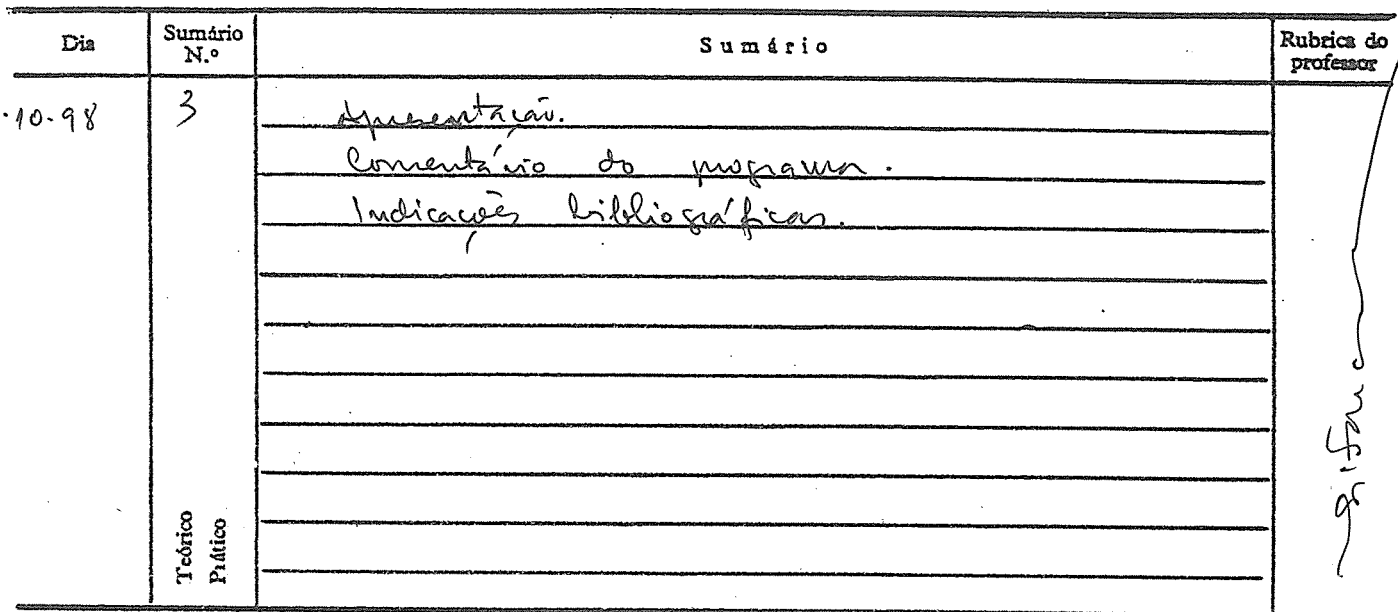 Dia
Sumário N.º
Sumário
Rubrica do professor
.10.98
3
Apresentação.
Comentário do programa.
Indicações bibliográficas.
Teórico
Prático